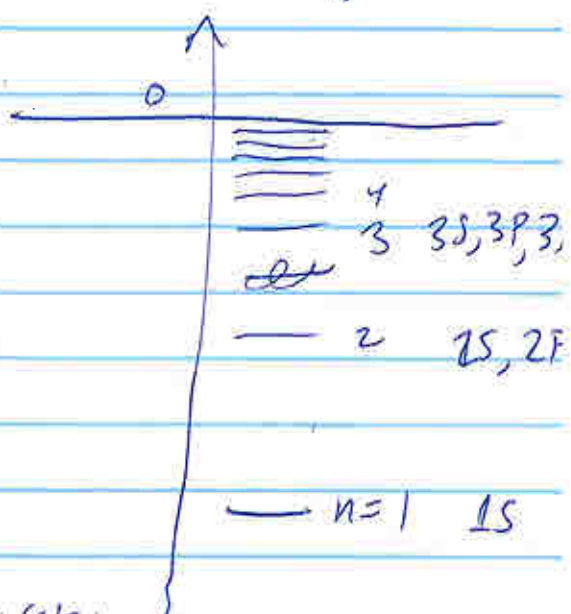 0
4
3 3S, 3P, 3,
2 2S, 2P
n=1 1S